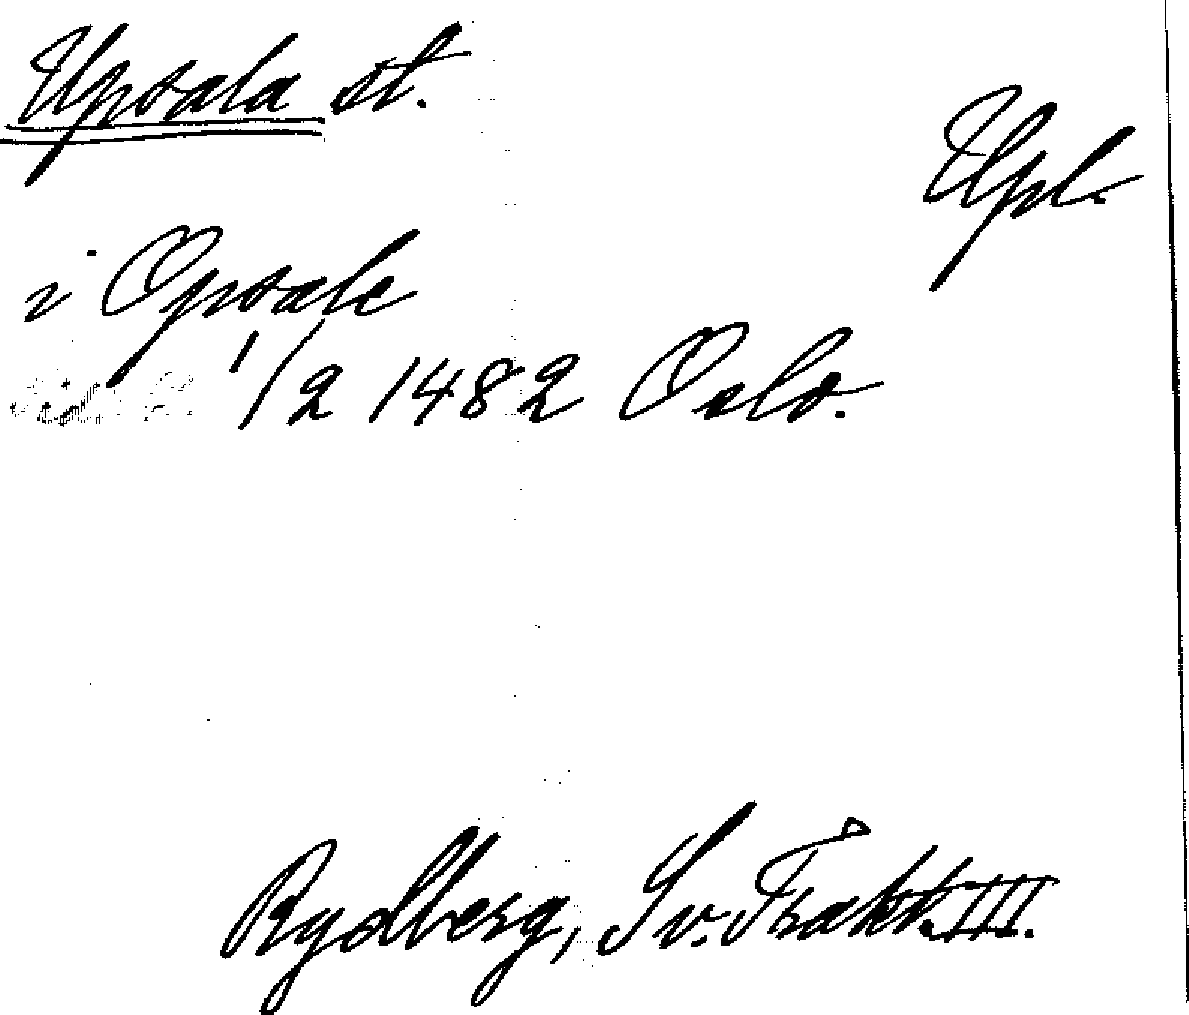 Upsala st.
Upl.
i Opsale
1/2 1482 Oslo.
Rydberg, Sv. Trakt. III.